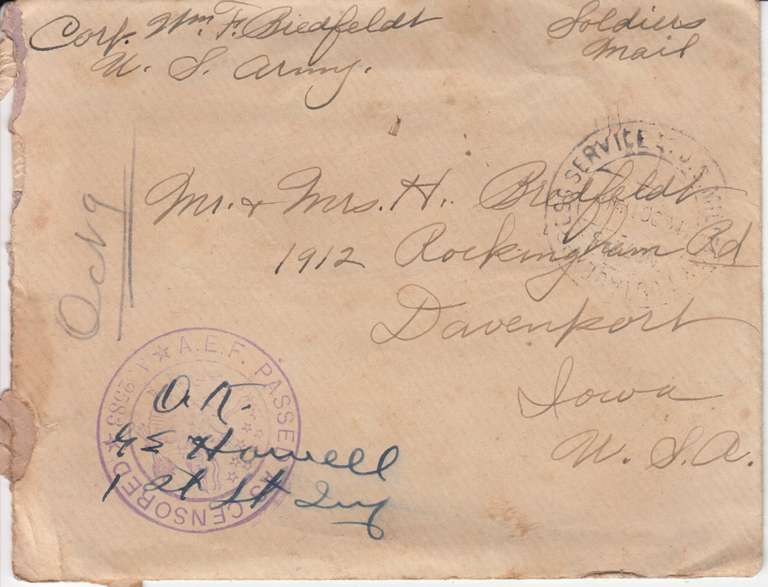 Corp. Wm. F. Biedfeldt
U. S. Army.
Soldiers
Mail
Mr. & Mrs. H. Bredfeldt
1912 Rockingham Rd
Davenport
Iowa
U. S. A.
A.E.F. PASSED AS CENSORED
SERVICE
O.K.
GE Howell
1st Lt Inf